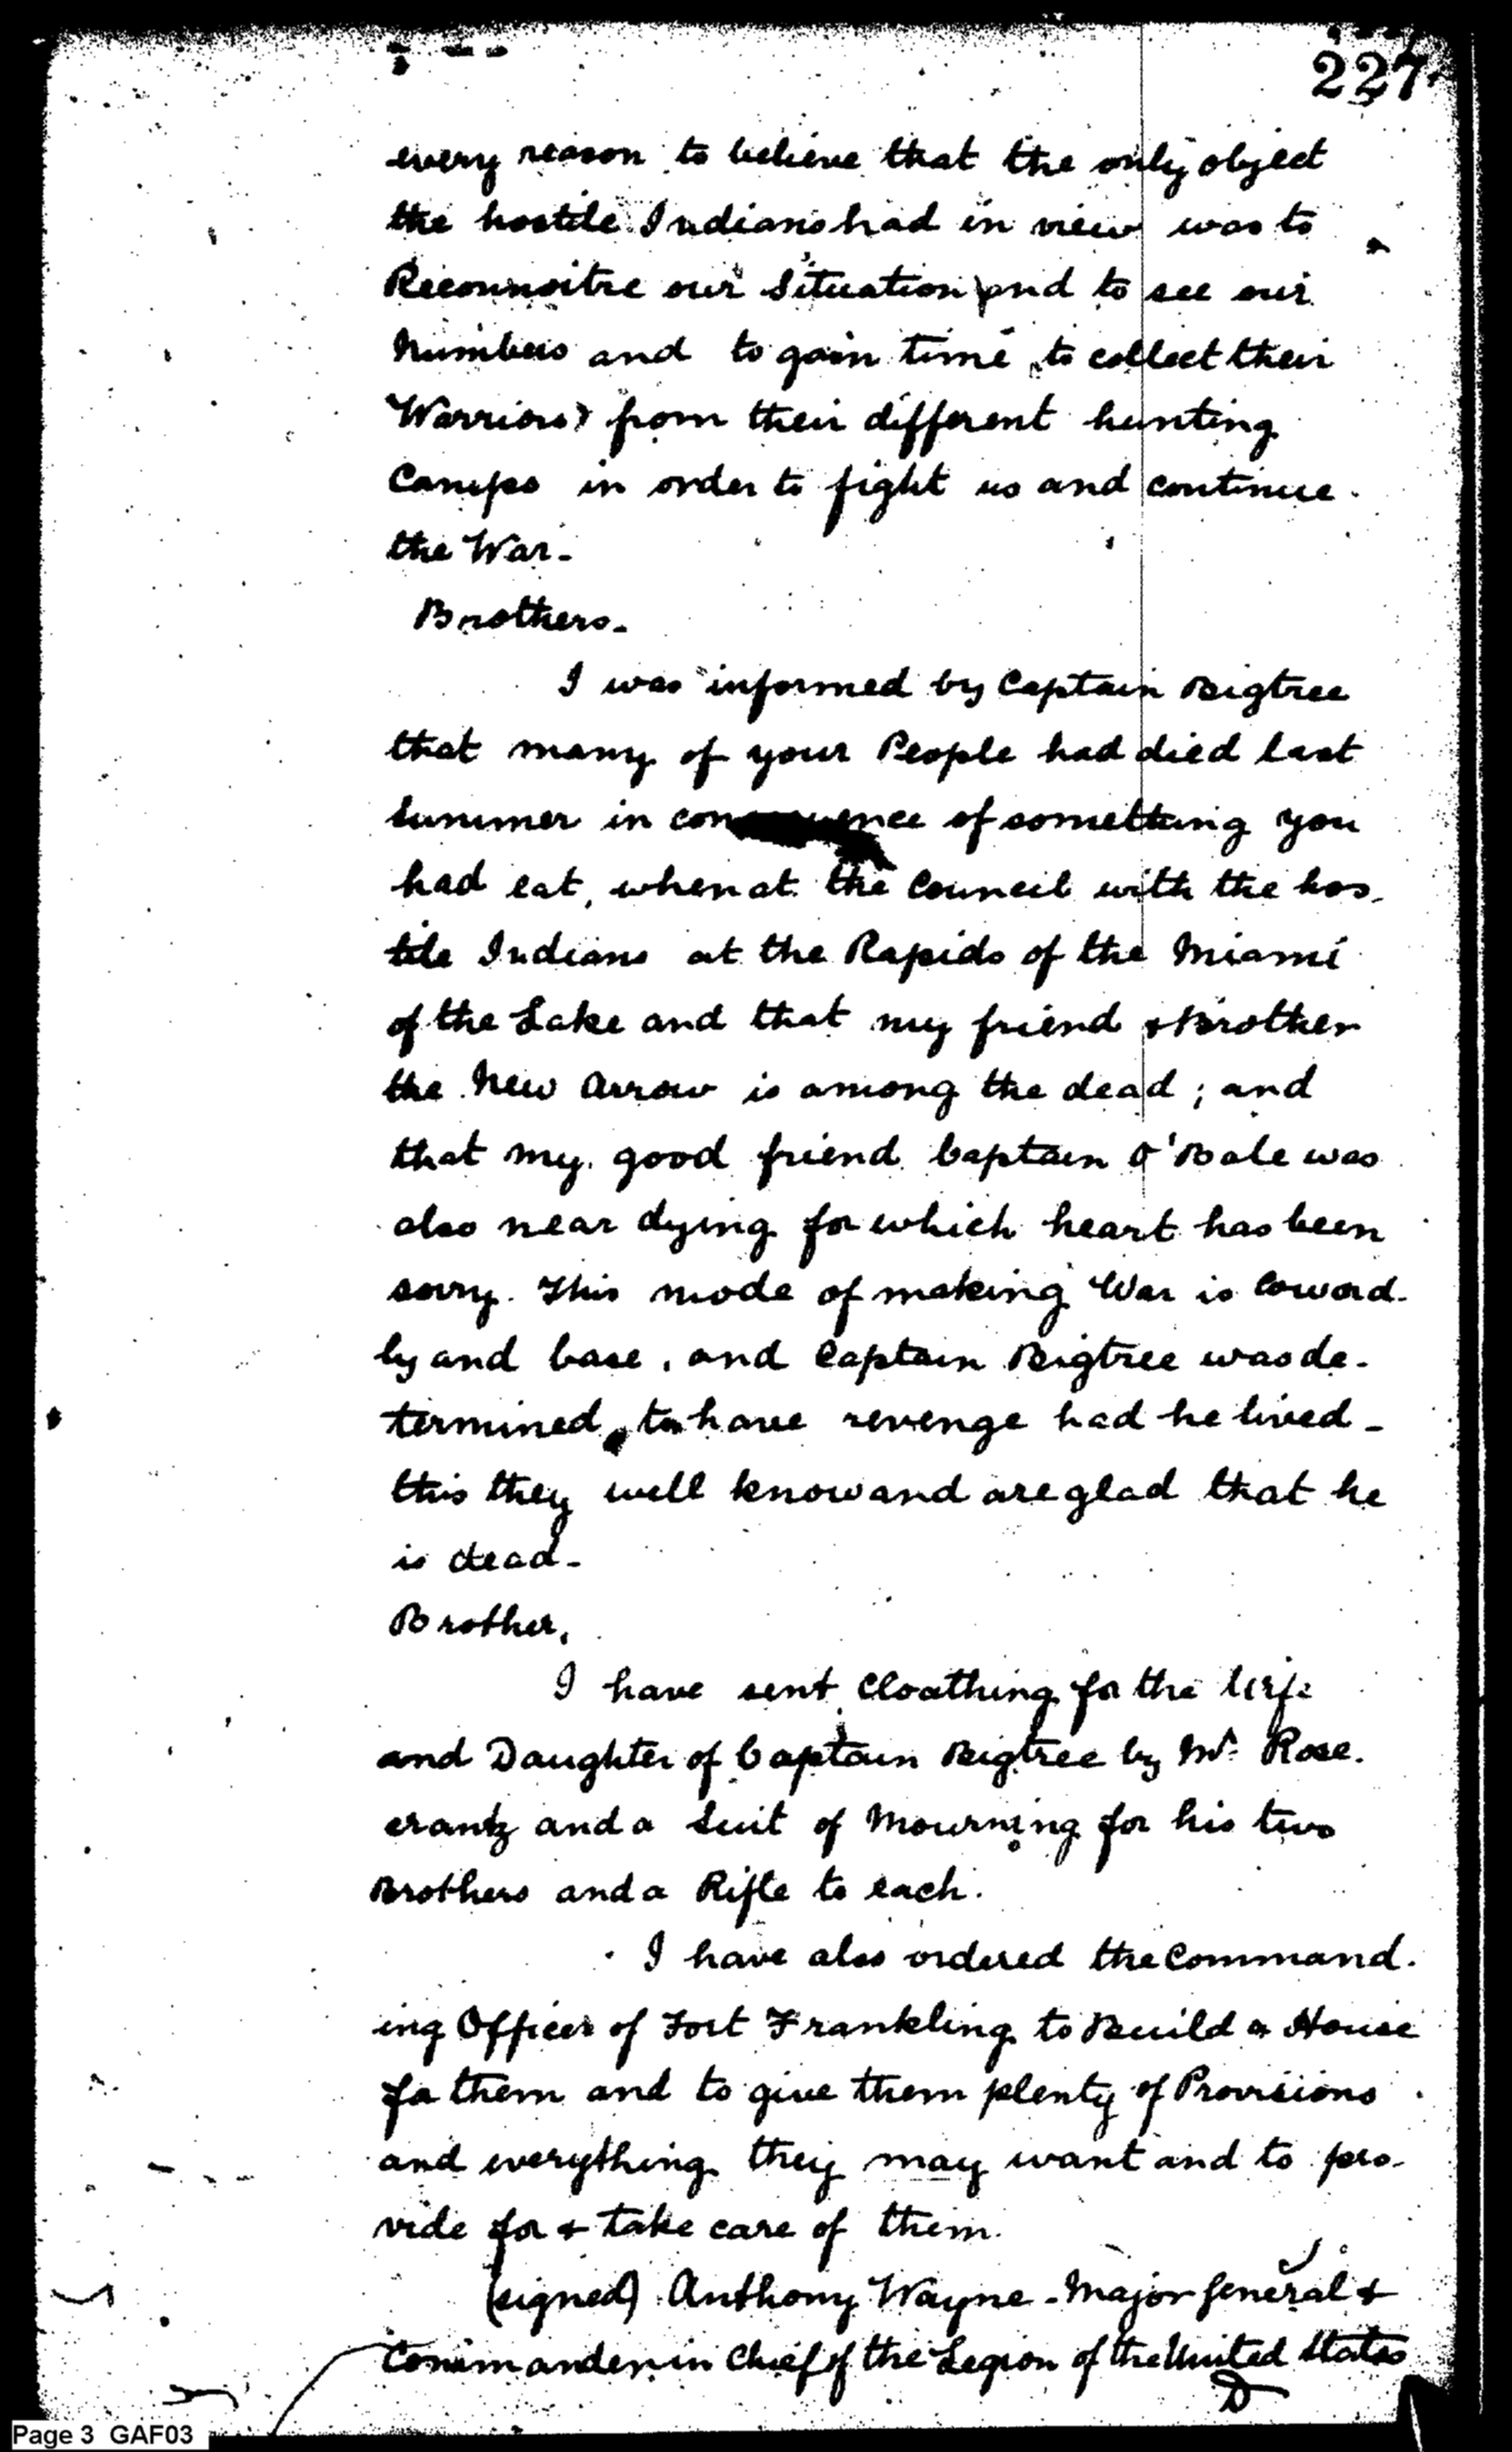 227
every reason to believe that the only object
the hostile Indians had in view was to
Reconnoitre our Situation and to see our
Numbers and to gain time to collect their
Warriors from their different hunting
Camps in order to fight us and continue
the War-
Brothers-
I was informed by Captain Bigtree
that many of your People had died last
Summer in consequence of something you
had eat, when at the Council with the hos-
tile Indians at the Rapids of the Miami
of the Lake and that my friend & Brother
the New Arrow is among the dead; and
that my good friend Captain O'Bale was
also near dying for which heart has been
sorry. This mode of making War is Coward-
ly and base, and Captain Bigtree was de-
termined, to have revenge had he lived-
this they well know and are glad that he
is dead-
Brother,
I have sent Cloathing for the Wife
and Daughter of Captain Bigtree by Mr. Rose-
crantz and a Suit of Mourning for his two
Brothers and a Rifle to each.
I have also ordered the Command-
ing Officer of Fort Frankling to Build a House
for them and to give them plenty of Provisions
and everything they may want and to pro-
vide for & take care of them.
(signed) Anthony Wayne - Major General &
Commander in Chief of the Legion of the United States
D
Page 3 GAF03